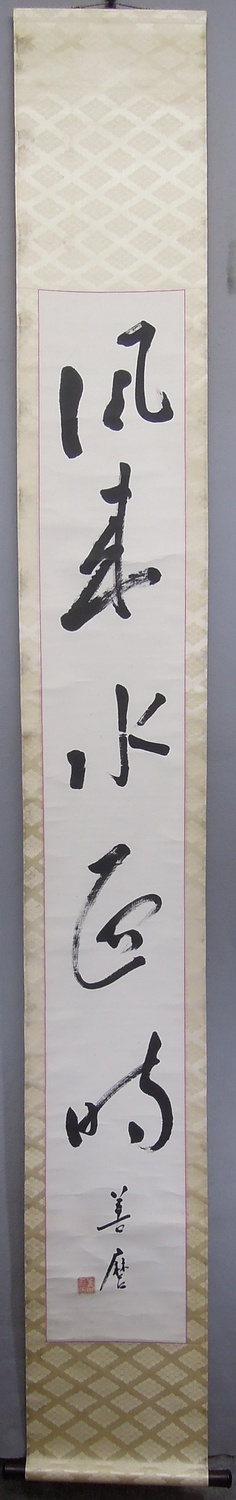 風来水面時
善麿